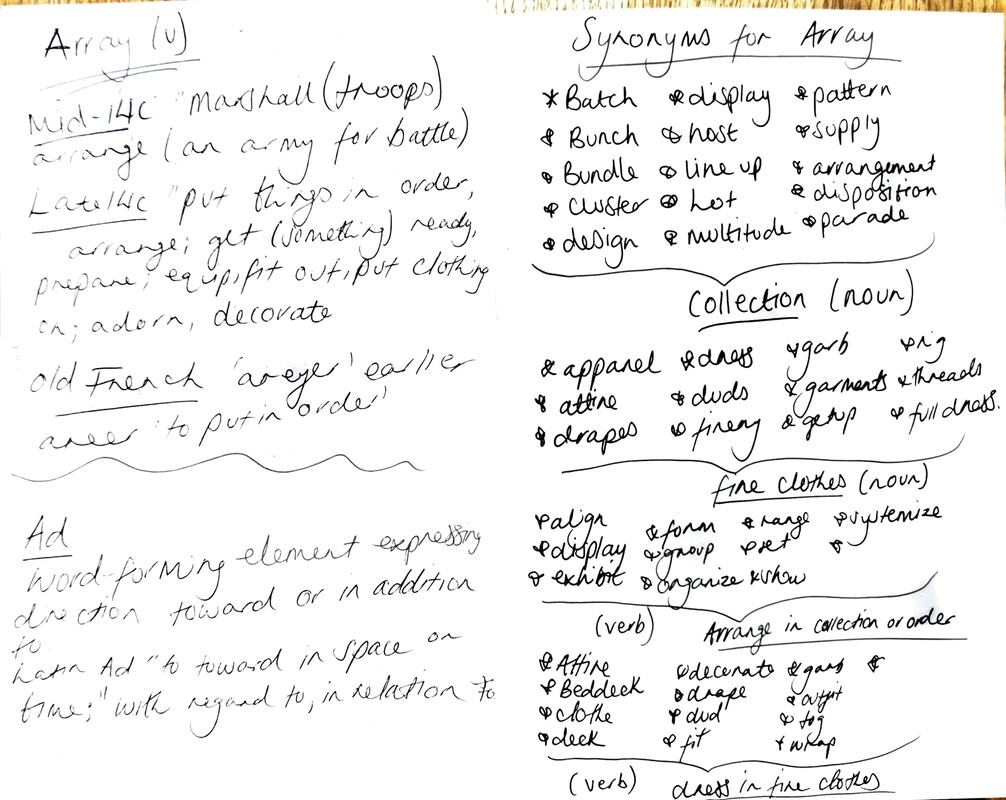 Array (v)
Mid-14c "Marshall (troops)
arrange (an army for battle)
Late 14c "put things in order,
arrange; get (something) ready,
prepare; equip, fit out, put clothing
on; adorn, decorate
Old French 'areyer' earlier
areer 'to put in order'
Ad
Word-forming element expressing
direction toward or in addition
to
Latin Ad "to toward in space or
time;" with regard to, in relation to
Synonyms for Array
* Batch * display * pattern
* Bunch * host * supply
* Bundle * line up * arrangement
* Cluster * lot * disposition
* design * multitude * parade
Collection (noun)
* apparel * dress * garb * rig
* attire * duds * garments * threads
* drapes * finery * getup * full dress.
fine clothes (noun)
* align * form * range * systemize
* display * group * set *
* exhibit * organize * show
(verb) Arrange in collection or order
* Attire * decorate * garb *
* Beddeck * drape * outfit
* clothe * dud * tog
* deck * fit * wrap
(verb) dress in fine clothes